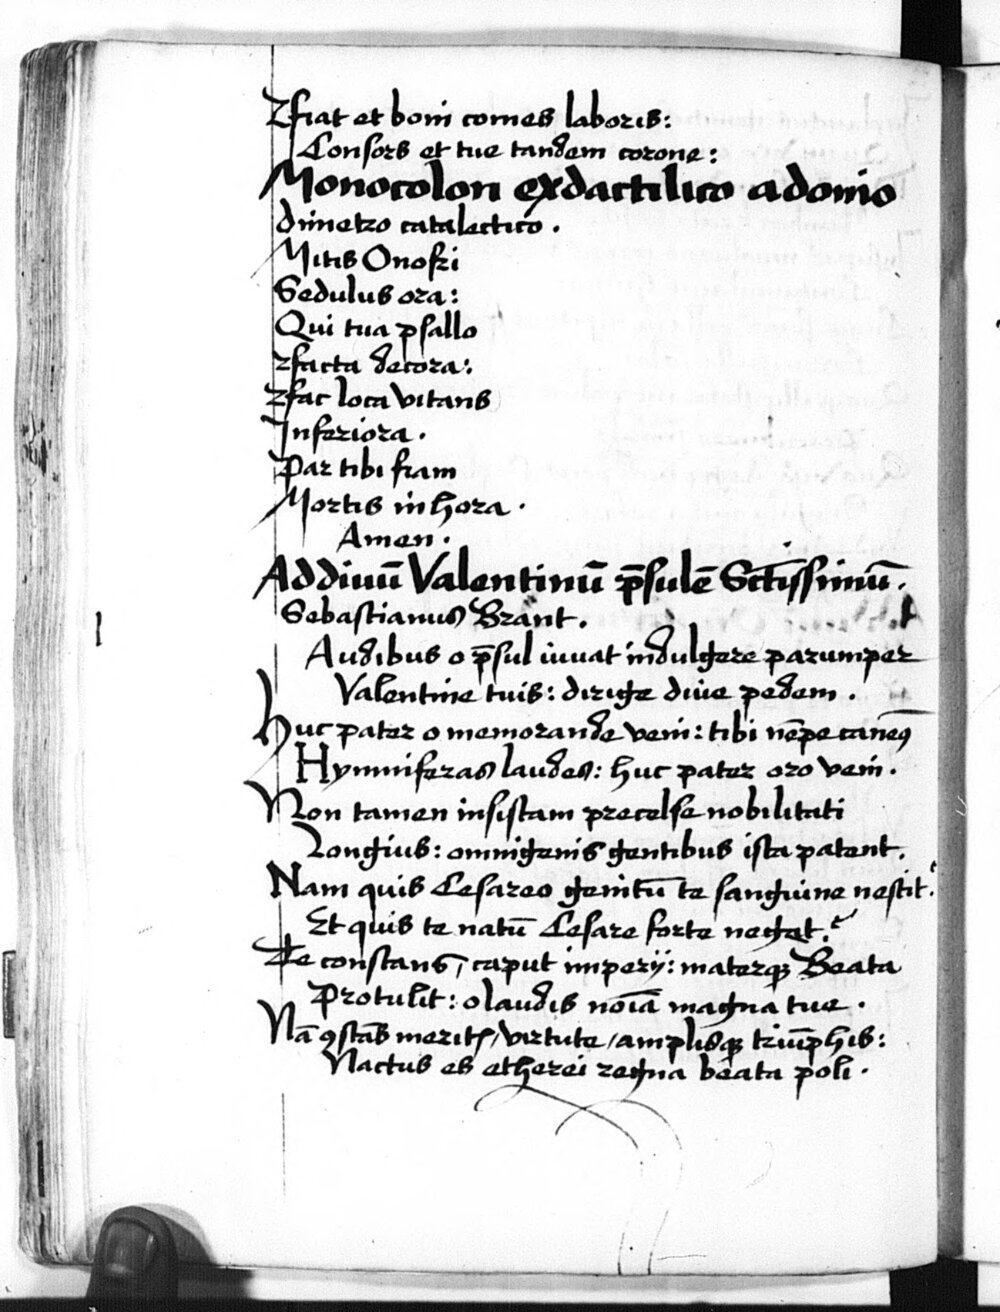 Fiat et boni comes laboris:
Consors et tue tandem corone:
Monocolon exdactilico adonio
dimetro catalectico.
Mitis Onofri
Sedulus ora:
Qui tua psallo
Facta decora:
Fac loca vitans
Inferiora.
Par tibi fiam
Mortis in hora.
Amen.
Ad diuū Valentinū p̄sulē Sct̄issimū.
Sebastianus Brant.
Audibus o p̄sul iuuat indulgere parumper
Valentine tuis: dirige diue pedem.
Huc pater o memorande veni: tibi nēpe canemꝰ
Hymniferas laudes: huc pater oro veni.
Non tamen insistam precelse nobilitati
Longius: omnigenis gentibus ista patent.
Nam quis Cesareo genitū te sanguine nescit?
Et quis te natū Cesare forte negat?
Te constans, caput imperij: materqꝫ Beata
Protulit: o laudis noīa magna tue.
Nā ꝯstās meritꝭ/ virtute/ amplisqꝫ triūphis:
Nactus es etherei regna beata poli.